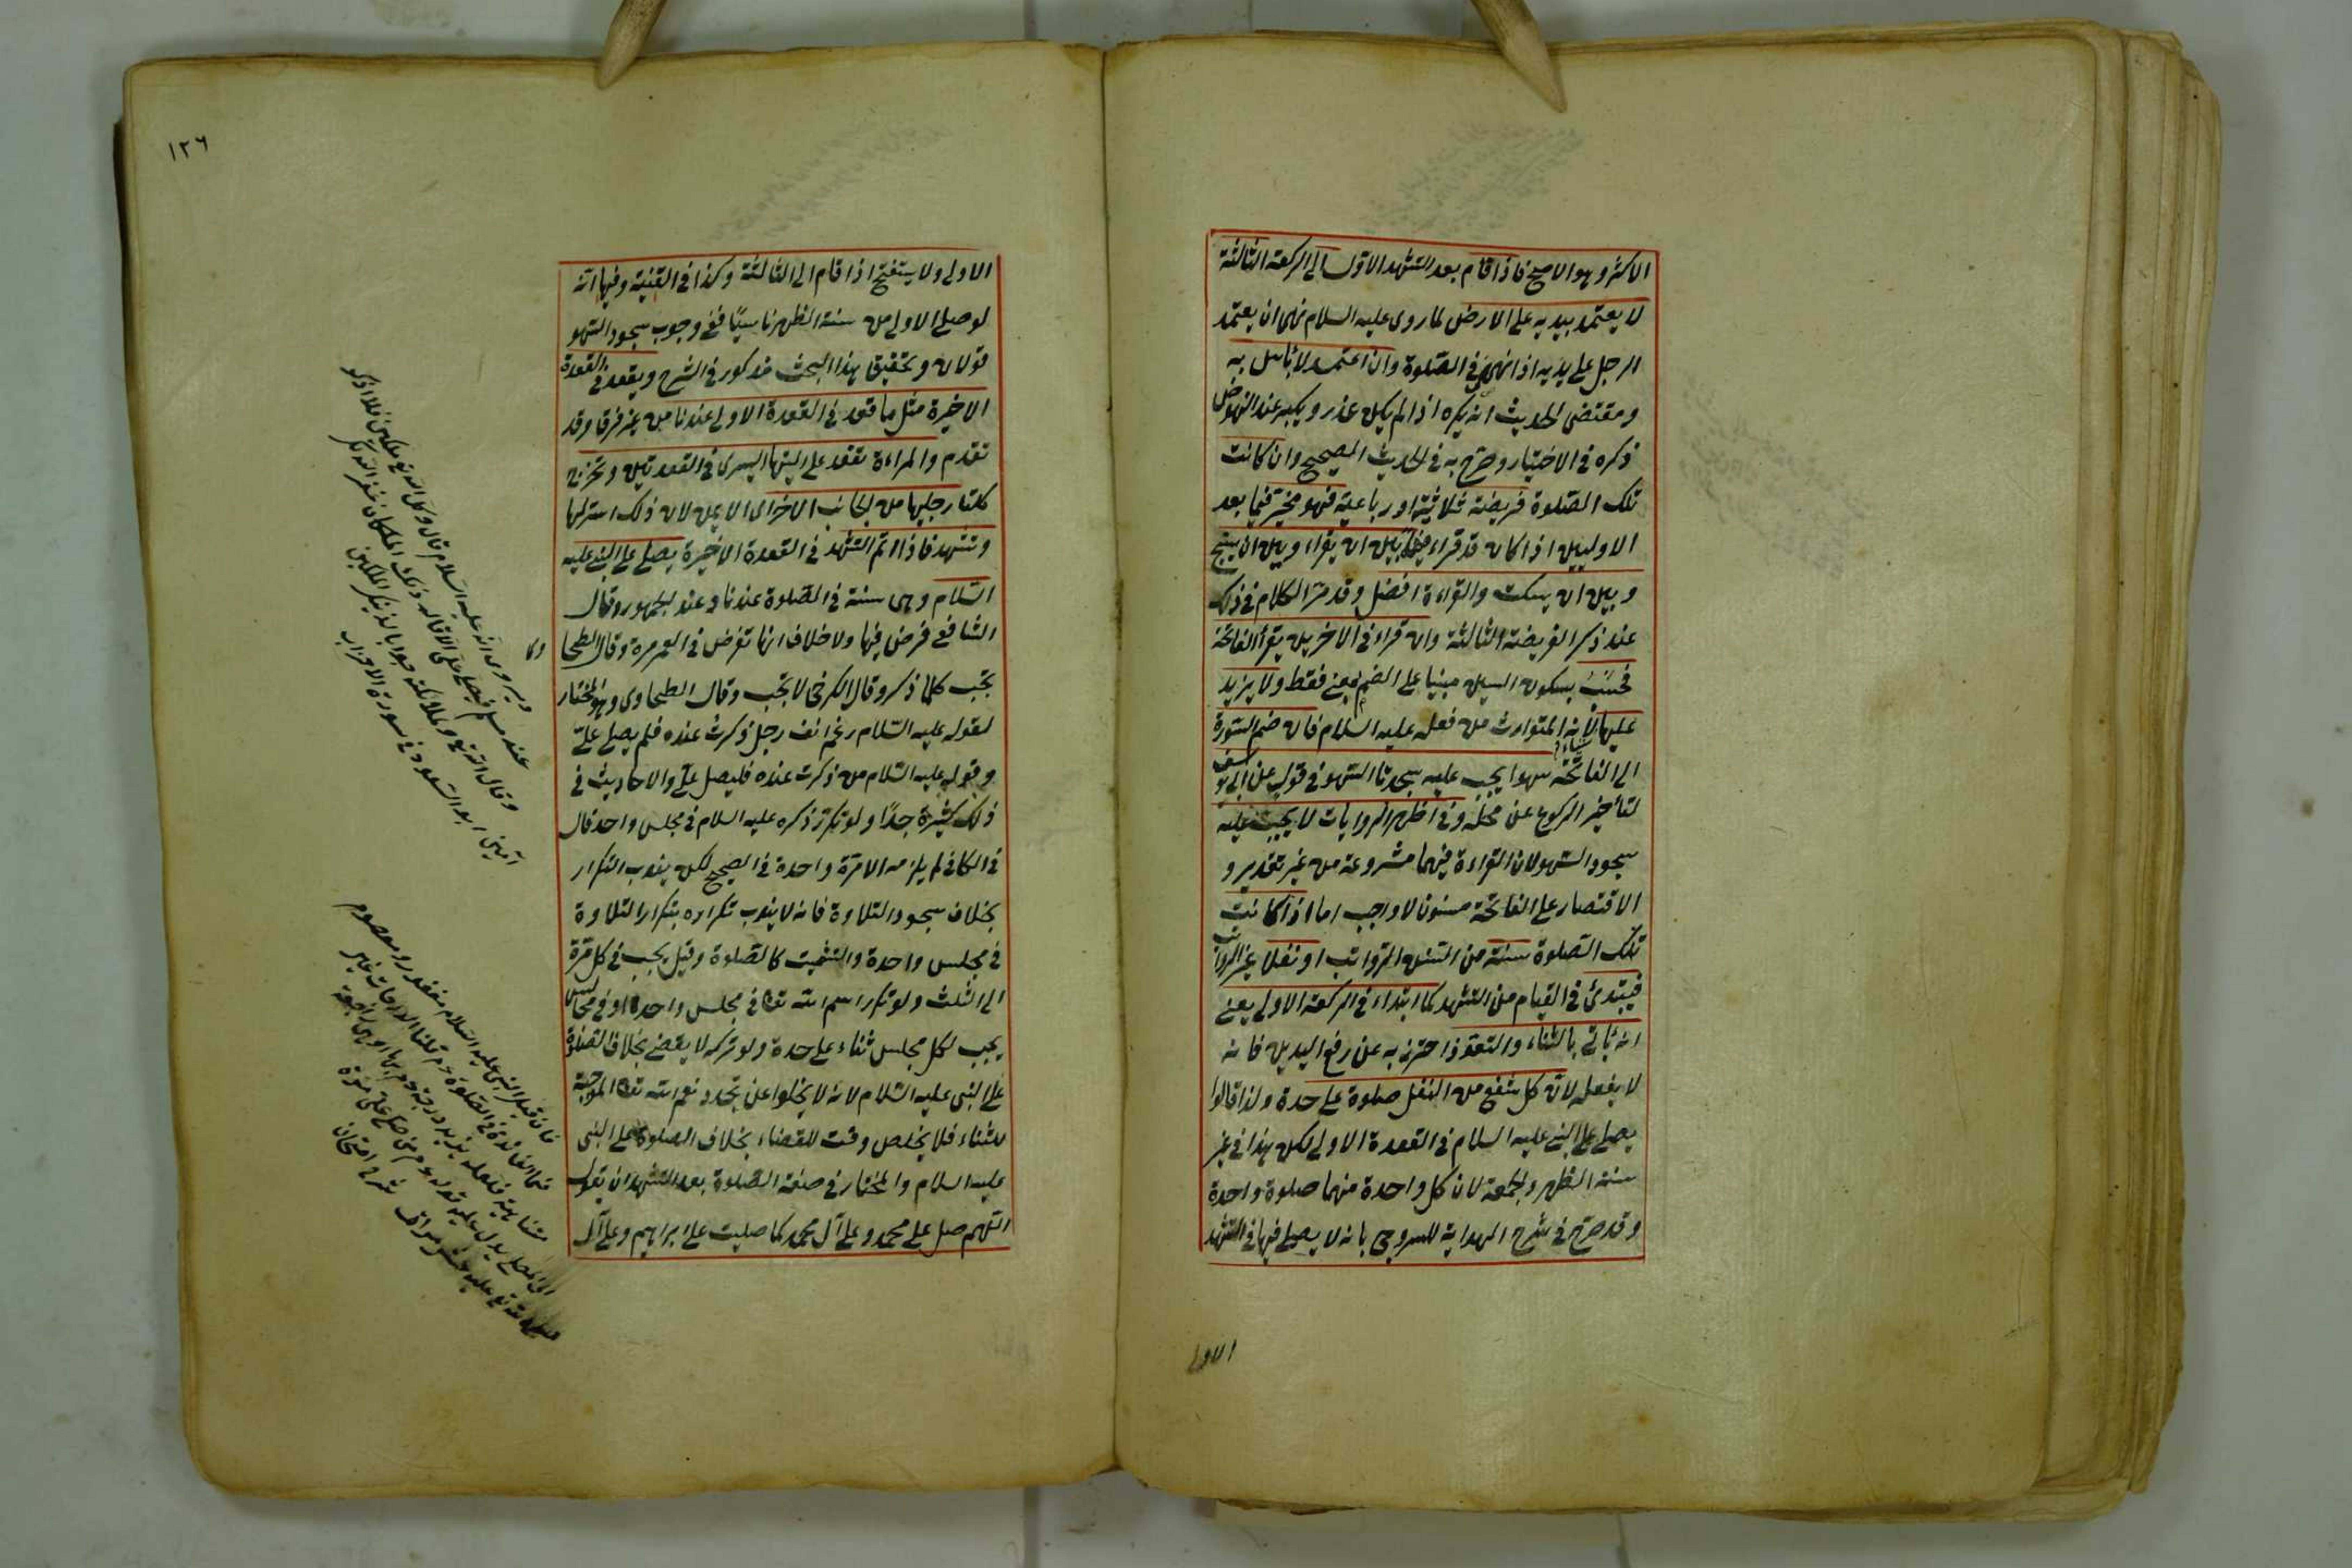 الاكثر وهو الاصح فاذا قام بعد التشهد الاول الى الركعة الثالثة
لا يعتمد بيديه على الارض لما روى عليه السلام نهى ان يعتمد
الرجل على يديه اذا نهض في الصلوة وان اعتمد لا بأس به
ومقتضى الحديث انه يكره اذا لم يكن عذر ويكبر عند النهوض
ذكره في الاختيار وصرح به في الحديث الصحيح وان كانت
تلك الصلوة فريضة ثلاثية او رباعية فهو مخير فيما بعد
الاوليين اذا كان قد قراء فيهما بين ان يقراء وبين ان يسبح
وبين ان يسكت والقراءة افضل وقد مر الكلام في ذلك
عند ذكر الفريضة الثالثة وان قراء في الاخريين يقرأ الفاتحة
فحسب بسكون السين مبنيا على الضم يعني فقط ولا يزيد
عليها شياء لانه المتوارث من فعله عليه السلام فان ضم السورة
الى الفاتحة سهوا يجب عليه سجدتا السهو في قول عن ابي يوسف
لتأخير الركوع عن محله وفي اظهر الروايات لا يجب عليه
سجود السهو لان القراءة فيهما مشروعة من غير تقدير و
الاقتصار على الفاتحة مسنون لا واجب اما اذا كانت
تلك الصلوة سنة من السنن الرواتب او نفلا غير الرواتب
فيبتدئ في القيام من التشهد كما ابتداء في الركعة الاولى يعني
انه ياتي بالثناء والتعوذ احترز به عن رفع اليدين فانه
لا يفعله لان كل شفع من النفل صلوة على حدة ولذا قالوا
يصلي على النبي عليه السلام في القعدة الاولى لكن هذا في غير
سنة الظهر والجمعة لان كل واحدة منهما صلوة واحدة
وقد صرح في شرح الهداية للسروجي بانه لا يصلي فيها في التشهد
الاولى
١٢٦
الاولى ولا يستفتح اذا قام الى الثالثة وكذا في القنية وفيها انه
لو صلى الاولى من سنة الظهر ناسيًا ففي وجوب سجود السهو
قولان وتحقيق هذا البحث مذكور في الشرح ويقعد في القعدة
الاخيرة مثل ما قعد في القعدة الاولى عندنا من غير فرق وقد
تقدم والمراءة تقعد على اليتها اليسرى في القعدتين وتخرج
كلتا رجليها من الجانب الاخر اي الايمن لان ذلك استر لها
وتتشهد فاذا اتم التشهد في القعدة الاخيرة يصلي على النبي عليه
السلام وهي سنة في الصلوة عندنا وعند الجمهور وقال
الشافعي فرض فيها ولا خلاف انها تفرض في العمر مرة وقال الطحا
وى
تجب كلما ذكر وقال الكرخي لا تجب وقال الطحاوى وهو المختار
لقوله عليه السلام رغم انف رجل ذكرت عنده فلم يصل عليّ
وقوله عليه السلام من ذكرت عنده فليصل عليّ والاحاديث في
ذلك كثيرة جدًا ولو تكرر ذكره عليه السلام في مجلس واحد قال
في الكافي لم يلزمه الا مرة واحدة في الصحيح لكن يندب التكرار
بخلاف سجود التلاوة فانه لا يندب تكراره بتكرار التلاوة
في مجلس واحدة والتشميت كالصلوة وقيل يجب في كل مرة
الى الثلث ولو تكرر اسم الله تعالى في مجلس واحد او في مجالس
يجب لكل مجلس ثناء على حدة ولو تركه لا يقضي بخلاف الصلوة
على النبي عليه السلام لانه لا يخلوا عن تجدد نعم الله تعالى الموجبة
للثناء فلا يخلص وقت للقضاء بخلاف الصلوة على النبي
عليه السلام والمختار في صفة الصلوة بعد التشهد ان يقول
اللهم صل على محمد وعلى آل محمد كما صليت على ابراهيم وعلى آل
ويروى انه عليه السلام قال وكل الله بي ملكين فلا اذكر
عند مسلم فيصلي علي الا قال له ذلك الملكان غفر الله لك
وقال الله تع وملائكته جوابا لذينك الملكين
آمين ابو السعود في سورة الاحزاب
فان قيل النبي عليه السلام مغفور ومعصوم
فما الفائدة في الصلوة